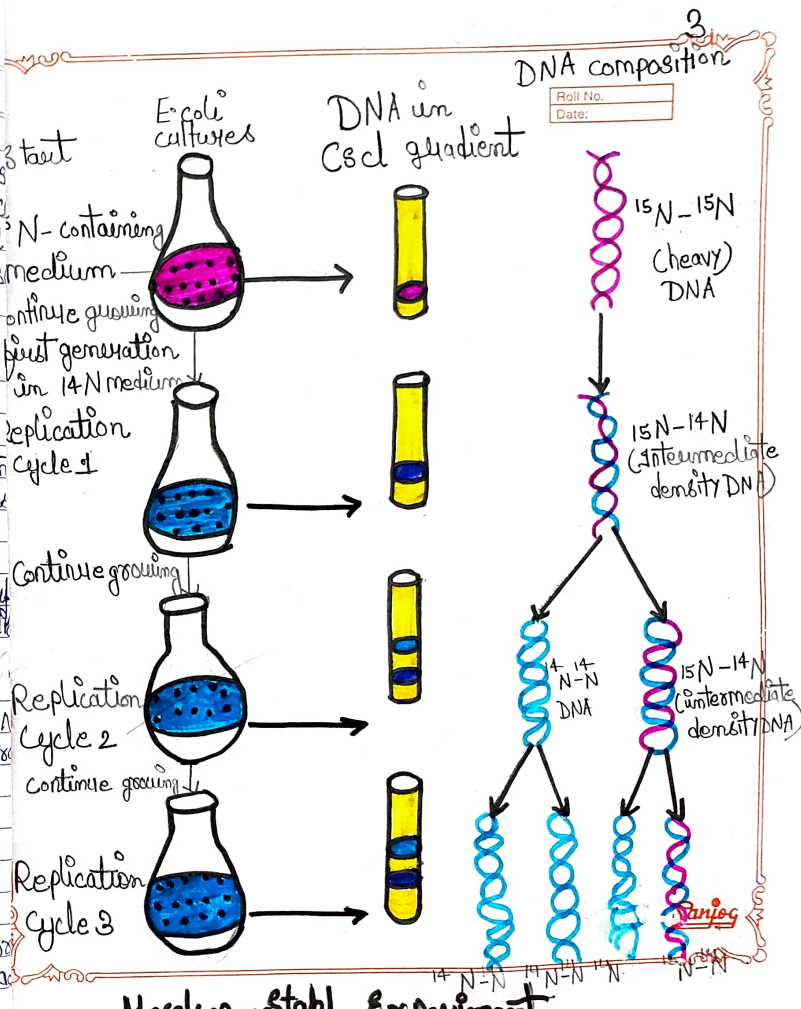 3
DNA composition
Roll No.
Date:
E.coli
cultures
DNA in
Cscl gradient
Start
N-containing
medium
continue growing
first generation
in 14N medium
Replication
Cycle 1
Continue growing
Replication
Cycle 2
continue growing
Replication
Cycle 3
15N-15N
(heavy)
DNA
15N-14N
(Intermediate
density DNA)
14 14
N-N
DNA
15N-14N
(intermediate
density DNA)
Sanjog
14 N-N 14N-N 14N N-N